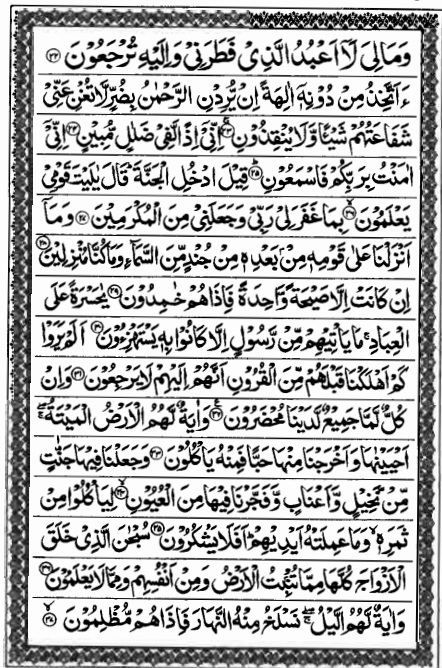 وَمَالِیَ لَاۤ اَعْبُدُ الَّذِیْ فَطَرَنِیْ وَاِلَیْهِ تُرْجَعُوْنَ ۝۲۲
ءَاَتَّخِذُ مِنْ دُوْنِهٖۤ اٰلِهَةً اِنْ یُّرِدْنِ الرَّحْمٰنُ بِضُرٍّ لَّا تُغْنِ عَنِّیْ
شَفَاعَتُهُمْ شَیْـًٔا وَّلَا یُنْقِذُوْنِ ۝۲۳ اِنِّیْۤ اِذًا لَّفِیْ ضَلٰلٍ مُّبِیْنٍ ۝۲۴ اِنِّیْۤ
اٰمَنْتُ بِرَبِّكُمْ فَاسْمَعُوْنِ ۝۲۵ قِیْلَ ادْخُلِ الْجَنَّةَ قَالَ یٰلَیْتَ قَوْمِیْ
یَعْلَمُوْنَ ۝۲۶ بِمَا غَفَرَ لِیْ رَبِّیْ وَجَعَلَنِیْ مِنَ الْمُكْرَمِیْنَ ۝۲۷ وَمَاۤ
اَنْزَلْنَا عَلٰی قَوْمِهٖ مِنْۢ بَعْدِهٖ مِنْ جُنْدٍ مِّنَ السَّمَآءِ وَمَا كُنَّا مُنْزِلِیْنَ ۝۲۸
اِنْ كَانَتْ اِلَّا صَیْحَةً وَّاحِدَةً فَاِذَا هُمْ خٰمِدُوْنَ ۝۲۹ یٰحَسْرَةً عَلَی
الْعِبَادِ ۚ مَا یَاْتِیْهِمْ مِّنْ رَّسُوْلٍ اِلَّا كَانُوْا بِهٖ یَسْتَهْزِءُوْنَ ۝۳۰ اَلَمْ یَرَوْا
كَمْ اَهْلَكْنَا قَبْلَهُمْ مِّنَ الْقُرُوْنِ اَنَّهُمْ اِلَیْهِمْ لَا یَرْجِعُوْنَ ۝۳۱ وَاِنْ
كُلٌّ لَّمَّا جَمِیْعٌ لَّدَیْنَا مُحْضَرُوْنَ ۝۳۲ وَاٰیَةٌ لَّهُمُ الْاَرْضُ الْمَیْتَةُ ۚ
اَحْیَیْنٰهَا وَاَخْرَجْنَا مِنْهَا حَبًّا فَمِنْهُ یَاْكُلُوْنَ ۝۳۳ وَجَعَلْنَا فِیْهَا جَنّٰتٍ
مِّنْ نَّخِیْلٍ وَّاَعْنَابٍ وَّفَجَّرْنَا فِیْهَا مِنَ الْعُیُوْنِ ۝۳۴ لِیَاْكُلُوْا مِنْ
ثَمَرِهٖ ۙ وَمَا عَمِلَتْهُ اَیْدِیْهِمْ ؕ اَفَلَا یَشْكُرُوْنَ ۝۳۵ سُبْحٰنَ الَّذِیْ خَلَقَ
الْاَزْوَاجَ كُلَّهَا مِمَّا تُنْۢبِتُ الْاَرْضُ وَمِنْ اَنْفُسِهِمْ وَمِمَّا لَا یَعْلَمُوْنَ ۝۳۶
وَاٰیَةٌ لَّهُمُ الَّیْلُ ۚ نَسْلَخُ مِنْهُ النَّهَارَ فَاِذَا هُمْ مُّظْلِمُوْنَ ۝۳۷